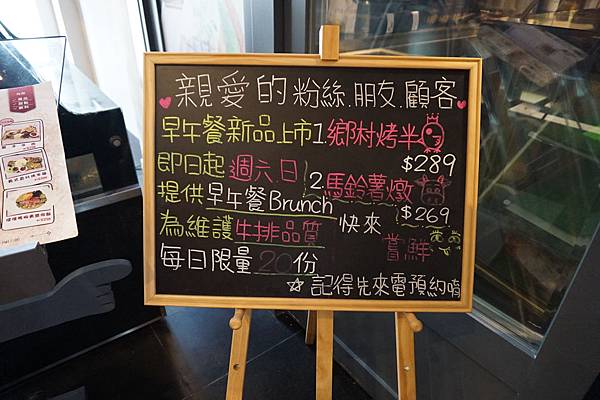 親愛的粉絲.朋友.顧客
早午餐新品上市
即日起週六.日
提供早午餐Brunch
為維護牛排品質
每日限量20份
1.鄉村烤半
$289
2.馬鈴薯燉
$269
快來
嘗鮮
☆記得先來電預約唷